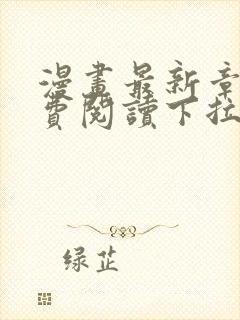 漫畫最新章
費閱讀下拉
绿芷